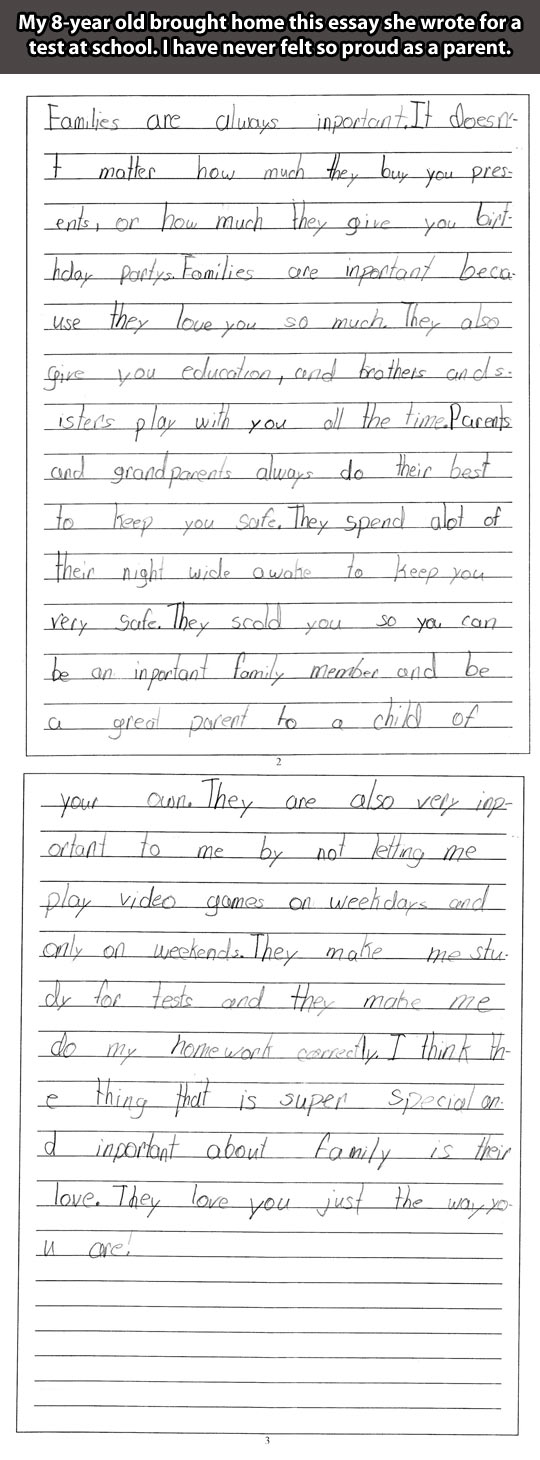 My 8-year old brought home this essay she wrote for a
test at school. I have never felt so proud as a parent.
Families are always inportant. It doesn'-
t matter how much they buy you pres-
ents, or how much they give you birt-
hday partys. Families are inportant beca-
use they love you so much. They also
give you education, and brothers and s-
isters play with you all the time. Parents
and grandparents always do their best
to keep you safe. They spend alot of
their night wide awake to keep you
very safe. They scold you so you can
be an inportant family member and be
a great parent to a child of
2
your own. They are also very inp-
ortant to me by not letting me
play video games on weekdays and
only on weekends. They make me stu-
dy for tests and they make me
do my homework correctly. I think th-
e thing that is super special an-
d inportant about family is their
love. They love you just the way yo-
u are!
3